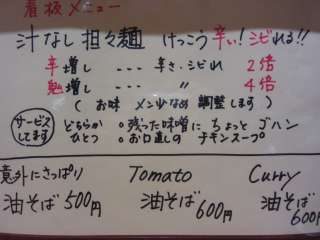 看板メニュー
汁なし 担々麺 けっこう辛い!シビれる!!
辛増し --- 辛さ・シビれ 2倍
勉増し --- 〃 4倍
( お味 メンツなめ 調整します )
サービスしてます どちらかひとつ
○残った味噌に ちょっとゴハン
○お口直しの チキンスープ
意外にさっぱり 油そば 500円
Tomato 油そば 600円
Curry 油そば 600円